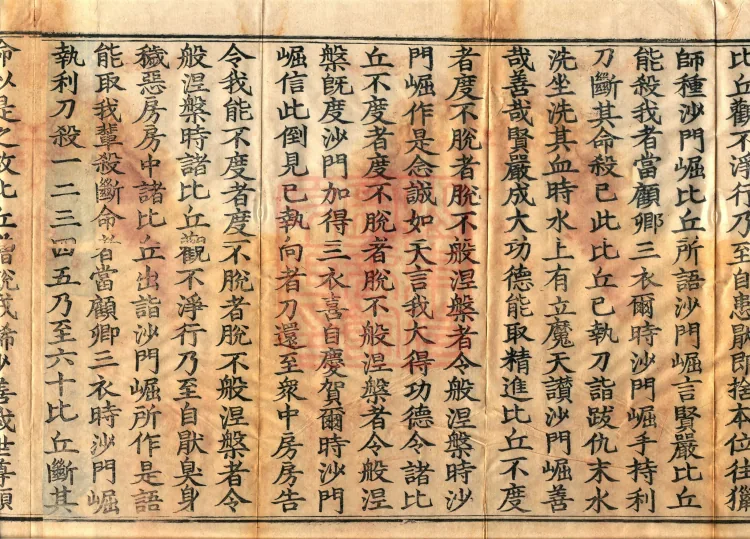 比丘觀不淨行乃至自患猒即捨本位往獵
師種沙門崛比丘所語沙門崛言賢嚴比丘
能殺我者當顧卿三衣爾時沙門崛手持利
刀斷其命殺已此比丘已執刀詣跋仇末水
洗坐洗其血時水上有立魔天讃沙門崛善
哉善哉賢嚴成大功德能取精進比丘不度
者度不脫者脫不般涅槃者令般涅槃時沙
門崛作是念誠如天言我大得功德令諸比
丘不度者度不脫者脫不般涅槃者令般涅
槃旣度沙門加得三衣喜自慶賀爾時沙門
崛信此倒見已執向者刀還至衆中房房告
令我能不度者度不脫者脫不般涅槃者令
般涅槃時諸比丘觀不淨行乃至自猒臭身
穢惡房房中諸比丘出詣沙門崛所作是語
能取我輩殺斷命者當顧卿三衣時沙門崛
執利刀殺一二三四五乃至六十比丘斷其
命以是之故比丘僧